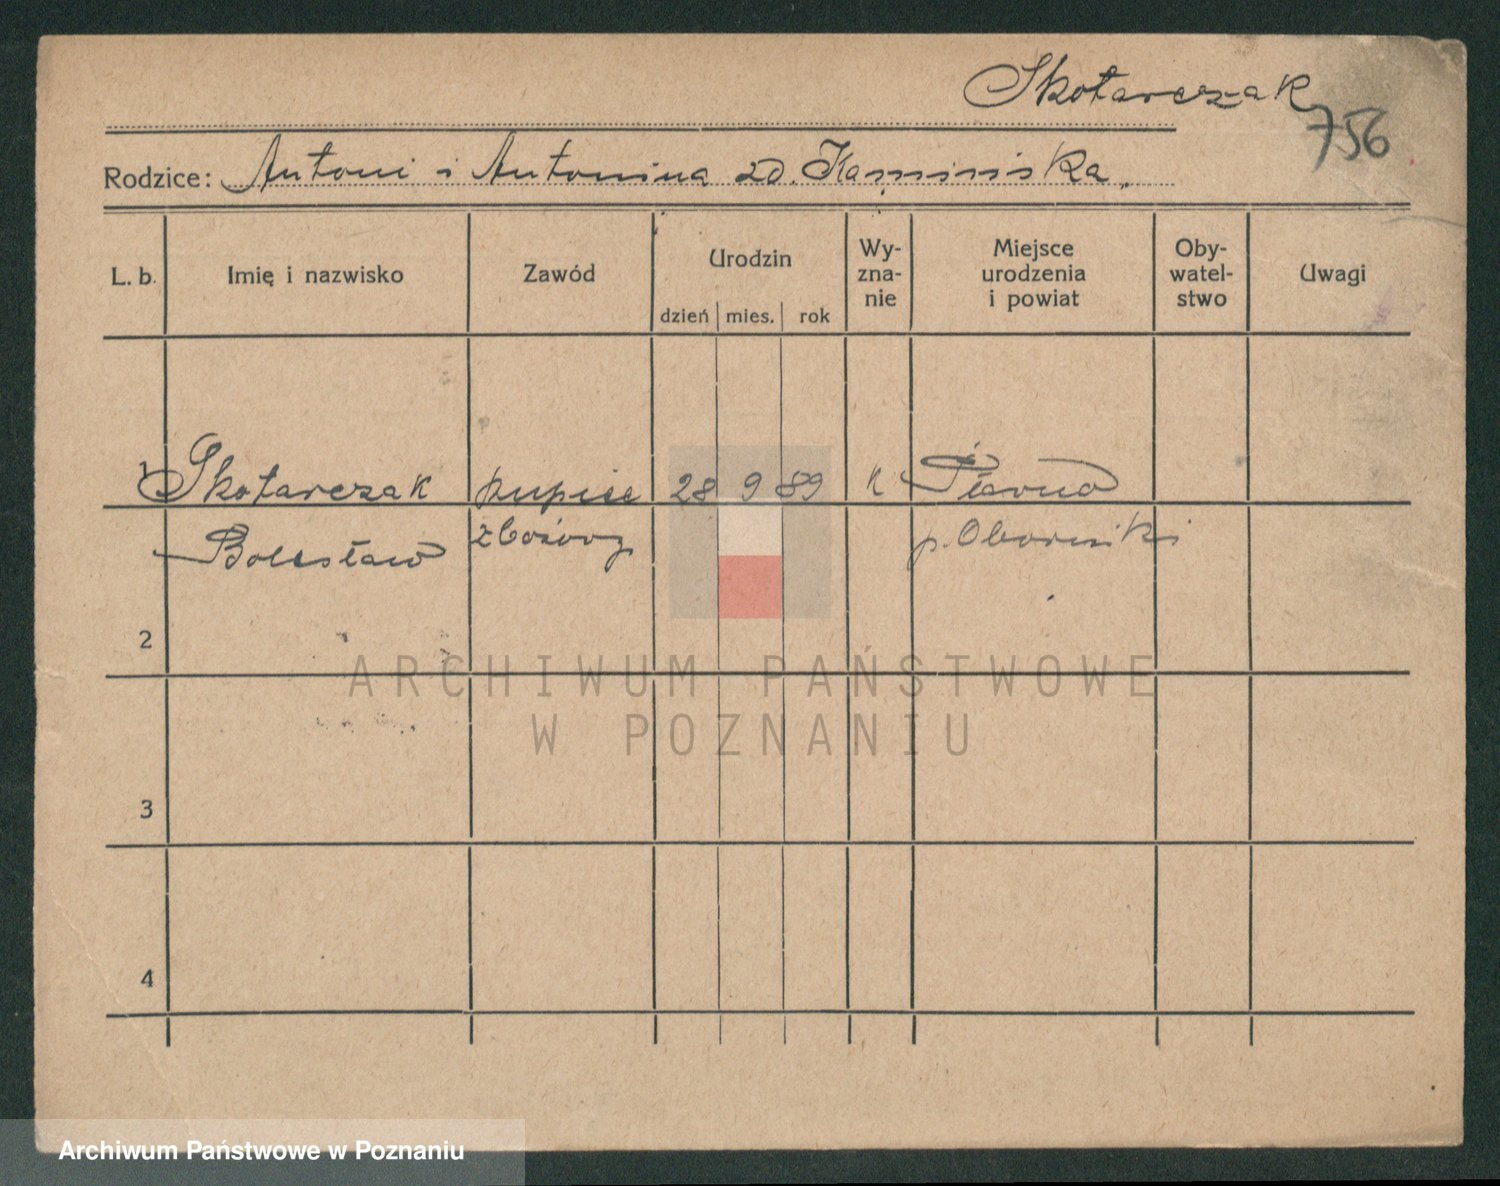 Skotarczak
756
Rodzice: Antoni i Antonina zd. Kaminiska.
L. b. Imię i nazwisko Zawód Urodzin Wy-zna-nie Miejsce urodzenia i powiat Oby-watel-stwo Uwagi
dzień mies. rok
1 Skotarczak kupiec 28 9 89 k
Bolesław zbożowy p. Oborniki
2
ARCHIWUM PAŃSTWOWE
W POZNANIU
3
4
Archiwum Państwowe w Poznaniu